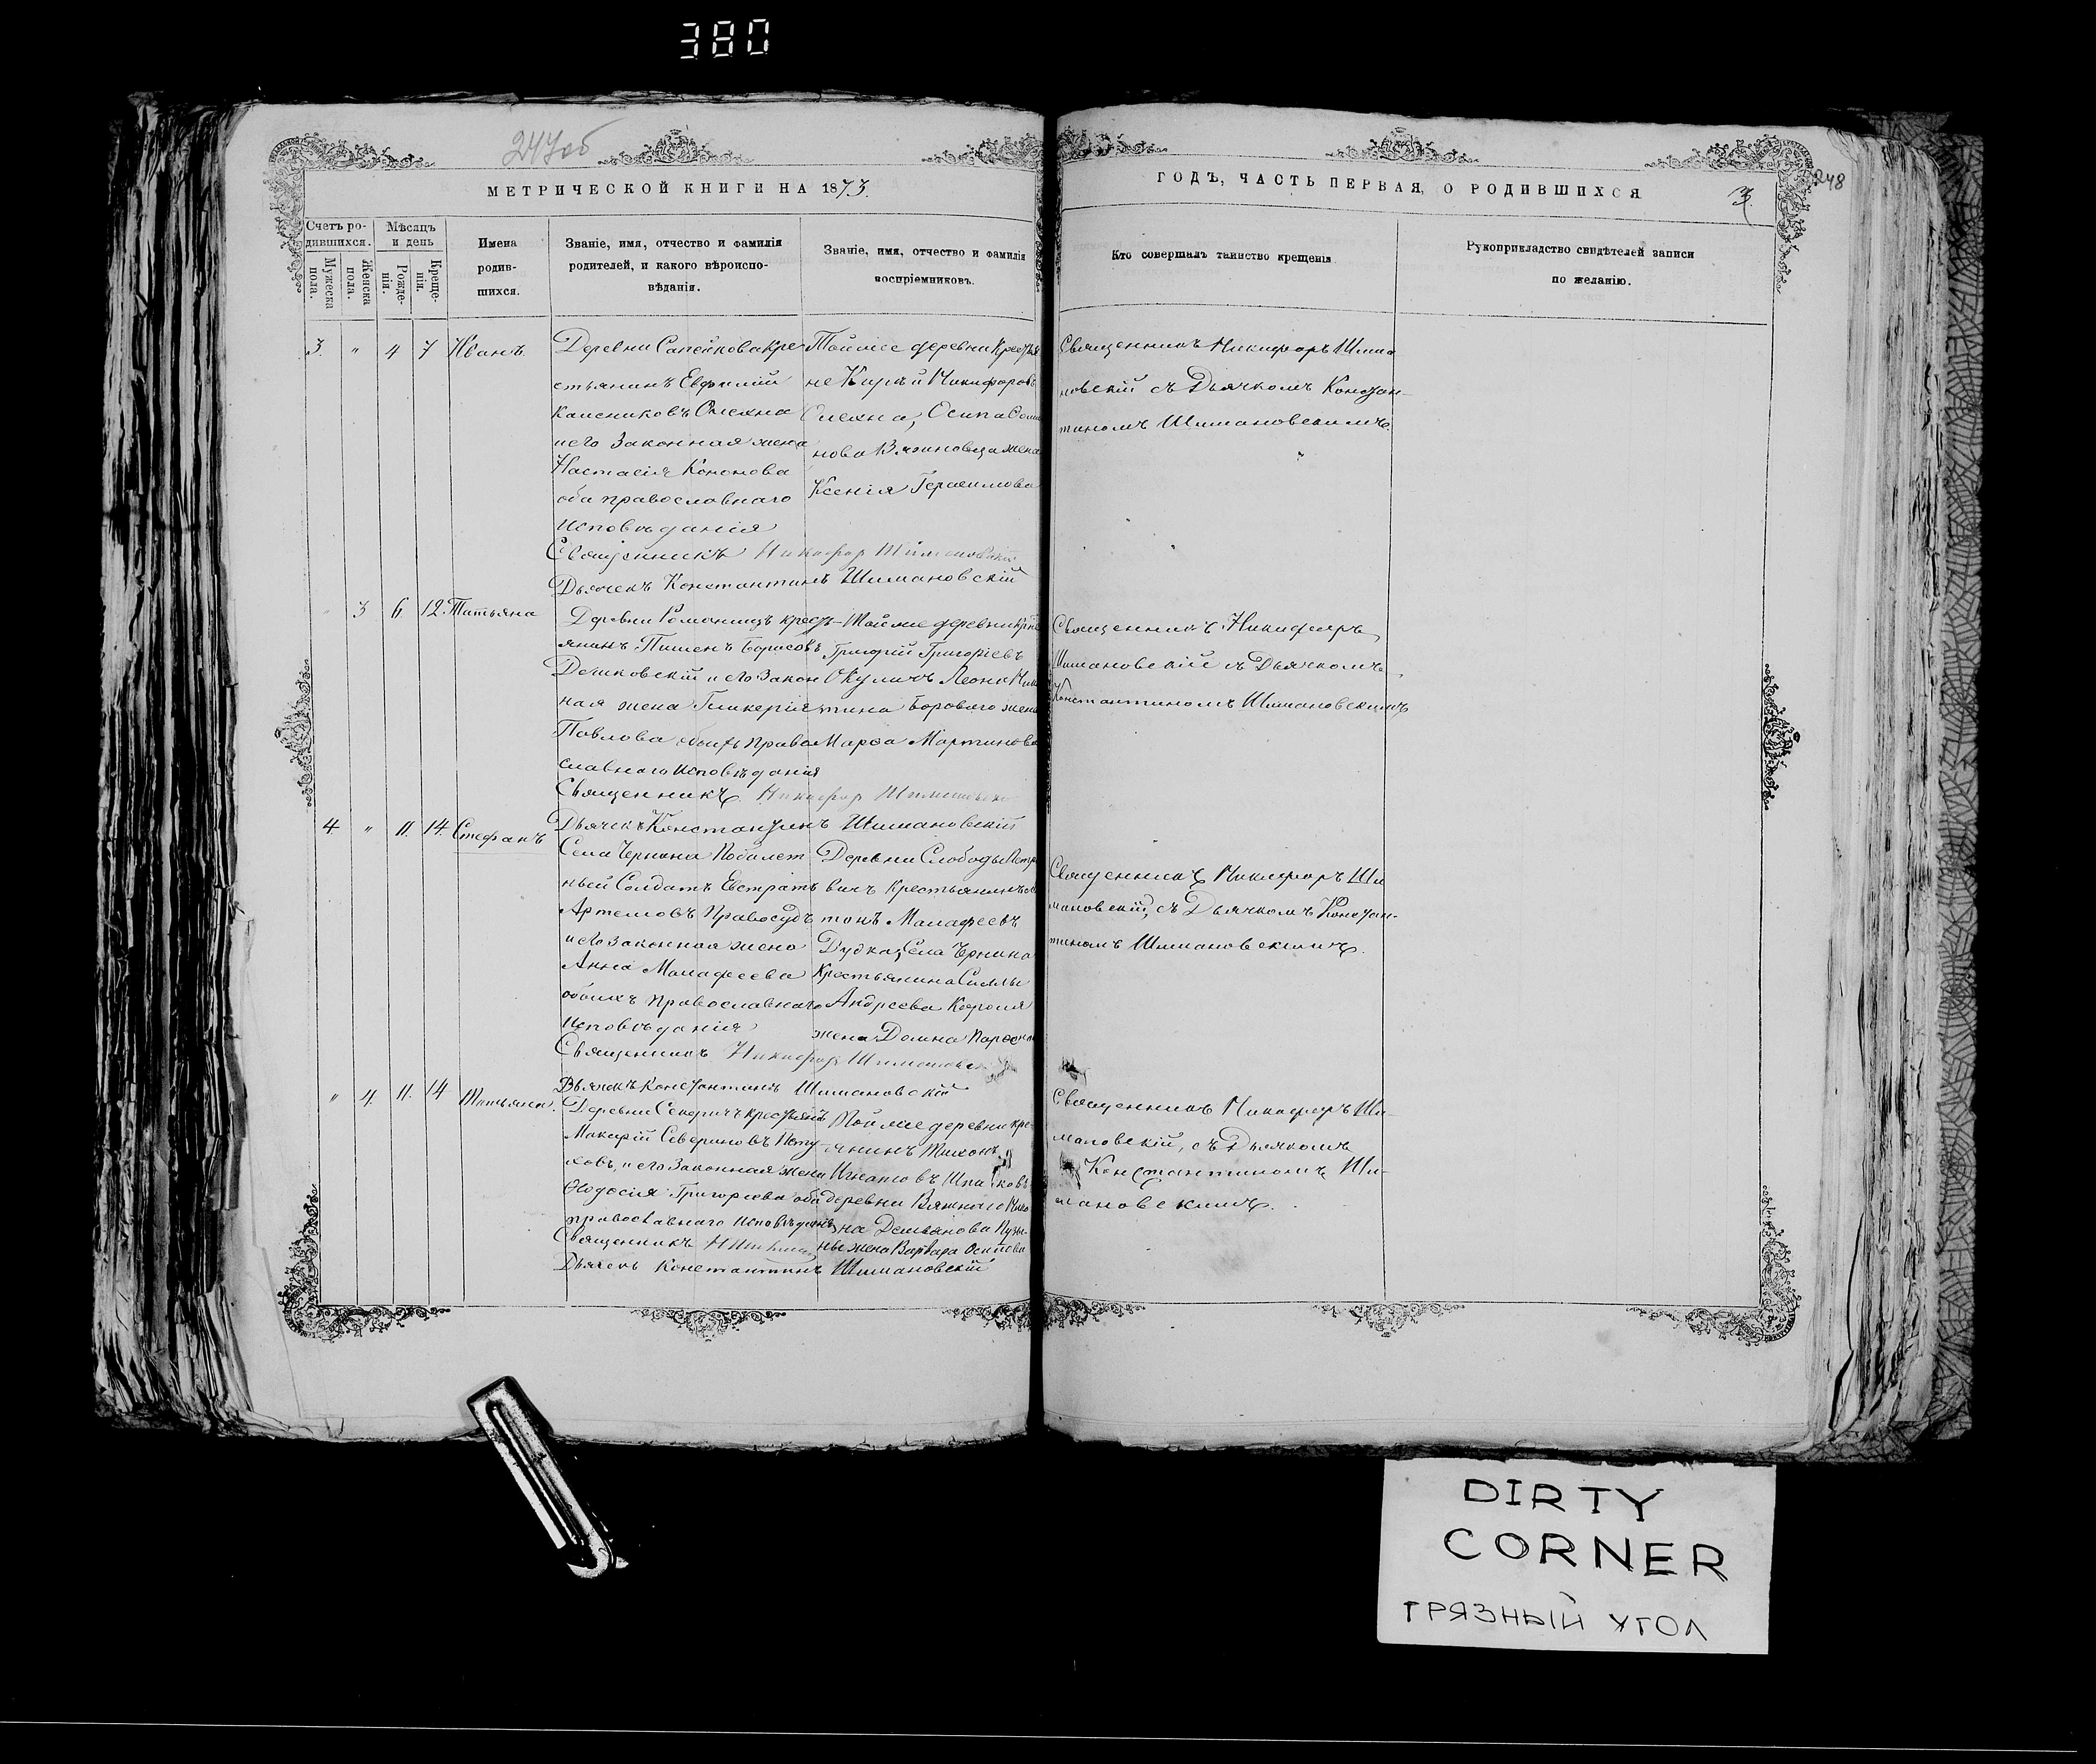 380
247об
МЕТРИЧЕСКОЙ КНИГИ НА 1873.
Счетъ ро-
дившихся.
Мужеска
пола.
Женска
пола.
Мѣсяцъ
и день
Рожде-
нія.
Креще-
нія.
Имена
родив-
шихся.
Званіе, имя, отчество и фамилія
родителей, и какого вѣроиспо-
вѣданія.
Званіе, имя, отчество и фамилія
воспріемниковъ.
3. " 4 7 Иванъ
Деревни Сапейкова Кре-
стьянинъ Евфимій
Олехна
и его Законная жена
Настасія Кононова
оба православнаго
Исповѣданія
Той же деревни Крестья
не Никифоровъ
Олехна, Осипа
нова жена
Ксенія Герасимова
Священникъ Никифоръ Шимановскій
Дьячекъ Константинъ Шимановскій
3 6 12. Татьяна
Деревни крест-
янинъ Пименъ Борисовъ
и его Закон
ная жена Гликерія
Павлова обоихъ Право
славнаго Исповѣданія
Той же деревни
Григорій Григоріевъ
Окуличъ
Борового жена
Марѳа Мартинова
Священникъ Никифоръ Шимановскій
Дьячекъ Константинъ Шимановскій
4. " 11. 14. Стефанъ
Села Чернина
ный Солдатъ Евстратъ
Артемовъ Правосудъ
и его законная жена
Анна Малафеева
обоихъ православнаго
Исповѣданія
Деревни Слободы
Крестьянинъ
Малафеевъ
Дудка, Села Чернина
Крестьянина Силы
Андреева Короля
жена Домна
Священникъ Никифоръ Шимановскій
Дьячекъ Константинъ Шимановскій
" 4. 11. 14 Татьяна.
Деревни крестьянинъ
Макарій Севериновъ
ховъ, и его Законная жена
Ѳеодосія Григорьева оба
православнаго Исповѣданія
Той же деревни кре-
янинъ Тихонъ
Игнатовъ
деревни
на Демьянова
жена Варвара Осипова
Священникъ
Дьячекъ Константинъ Шимановскій
ГОДЪ, ЧАСТЬ ПЕРВАЯ, О РОДИВШИХСЯ
3.
248
Кто совершалъ таинство крещенія
Рукоприкладство свидѣтелей записи
по желанію.
Священникъ Никифоръ Шима
новскій съ Дьячкомъ Констан-
тиномъ Шимановскимъ.
Священникъ Никифоръ
Шимановскій съ Дьячкомъ
Константиномъ Шимановскимъ
Священникъ Никифоръ Ши
мановскій, съ Дьячкомъ Констан-
тиномъ Шимановскимъ.
Священникъ Никифоръ Ши-
мановскій, съ Дьячкомъ
Константиномъ Ши-
мановскимъ.
DIRTY
CORNER
ГРЯЗНЫЙ УГОЛ